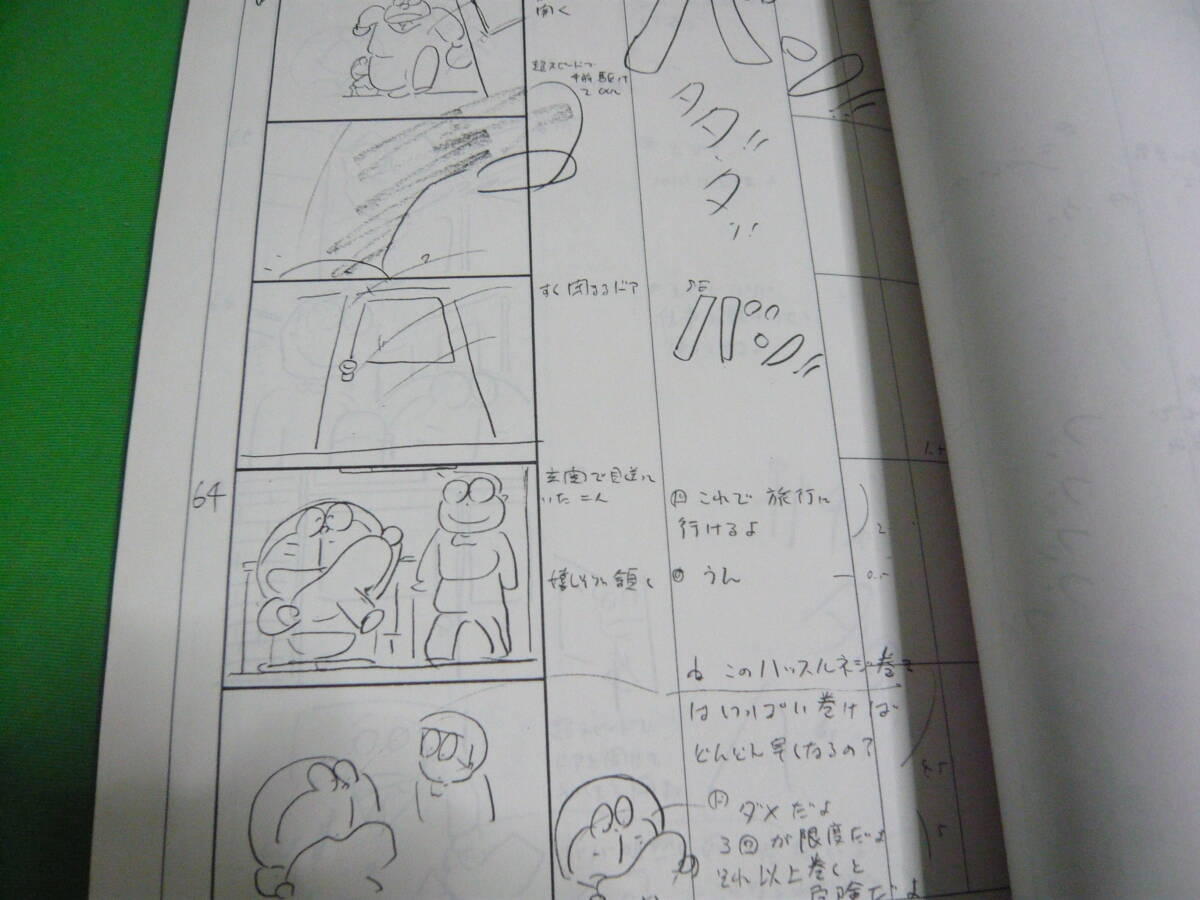 開く
超スピードで
バン
タタッ!!
タ
ッ!!
すぐ閉まるドア
バン!!
64
玄関で見送って
いた二人
ド これで 旅行に
行けるよ
2
嬉しそうに 頷く
の うん
0.5
このハッスルネジ巻き
はいっぱい巻けば
どんどん早くなるの?
4.5
ド ダメだよ
3回が限度だよ
それ以上巻くと
危険だよ
5